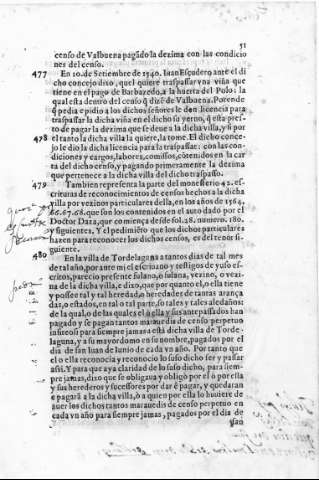 51
censo de Valbuena pagādo la dezima con las condicio
nes del censo.
477 En 20. de Setiembre de 1540. Iuan Escudero ante el di
cho concejo dixo, quel quiere traspassar vna viña que
tiene en el pago de Barbazedo, a la huerta del Polo: la
qual esta dentro del censo q̃ dizē de Valbuena. Porende
q̃ pedia e pidio a los dichos señores le den licencia para
traspassar la dicha viña en el dicho su yerno, q̃ esta pres-
to de pagar la dezima que se deue a la dicha villa, y si por
478 el tanto la dicha villa la quiere, la tome. El dicho conce-
jo le dio la dicha licencia para la traspassar: con las con-
diciones y cargos, labores, comissos, cōtenidos en la car
ta del dicho censo, y pagando primeramente la dezima
que pertenece a la dicha villa del dicho traspasso.
479 Tambien representa la parte del monesterio 42. es-
crituras de reconocimientos de censos hechos a la dicha
villa por vezinos particulares della, en los años de 1564,
66. 67. 68. que son los contenidos en el auto dado por el
Doctor Dara, que comença desde fol. 28. numero. 180.
y siguientes. Y el pedimiēto que los dichos particulares
hazen para reconocer los dichos censos, es del tenor si-
guiente.
480 En la villa de Tordelaguna a tantos dias de tal mes
de tal año, por ante mi el escriuano y testigos de yuso es-
critos, parecio presente fulano, o fulana, vezino, o vezi-
na de la dicha villa, e dixo, que por quanto el, o ella tiene
y possee tal y tal heredad, o heredades de tantas arança
das, o estados, en tal o tal parte, so tales y tales aledaños:
de la qual, o de las quales el o ella y sus antepassados han
pagado y se pagan tantos marauedis de censo perpetuo
infiteosi para siempre jamas a esta dicha villa de Torde-
laguna, y a su mayordomo en su nombre, pagados por el
dia de san Iuan de Iunio de cada vn año. Por tanto que
el o ella reconocia y reconocio lo suso dicho ser y passar
assi. Y para que aya claridad de lo suso dicho, para siem-
pre jamas, dixo que se obligaua y obligò por el o por ella
y sus herederos y sucessores por dar ē pagar, y que daran
e pagarā a la dicha villa, ò a quien por ella lo huuiere de
auer los dichos tantos marauedis de censo perpetuo en
cada vn año para siempre jamas, pagados por el dia de
san